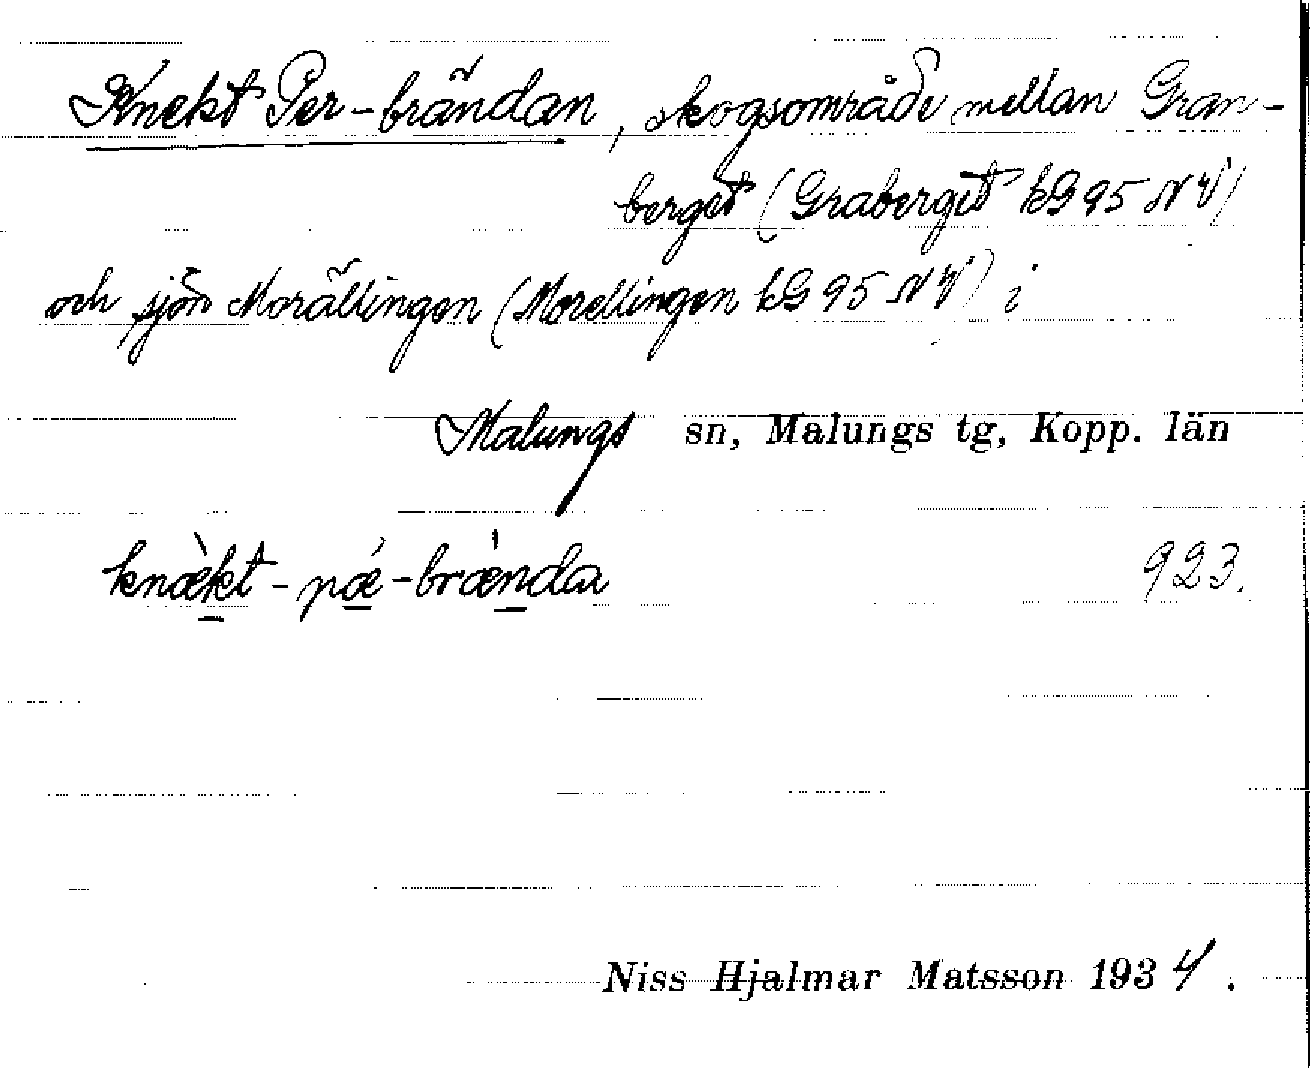 Knekt Per-brändan, skogsområde mellan Gran-
berget (Graberget kG 95 NV)
och sjön Morällingen (Morellingen kG 95 NV) i
Malungs sn, Malungs tg, Kopp. län
knækt-pæ-brænda 923.
Niss Hjalmar Matsson 1934.